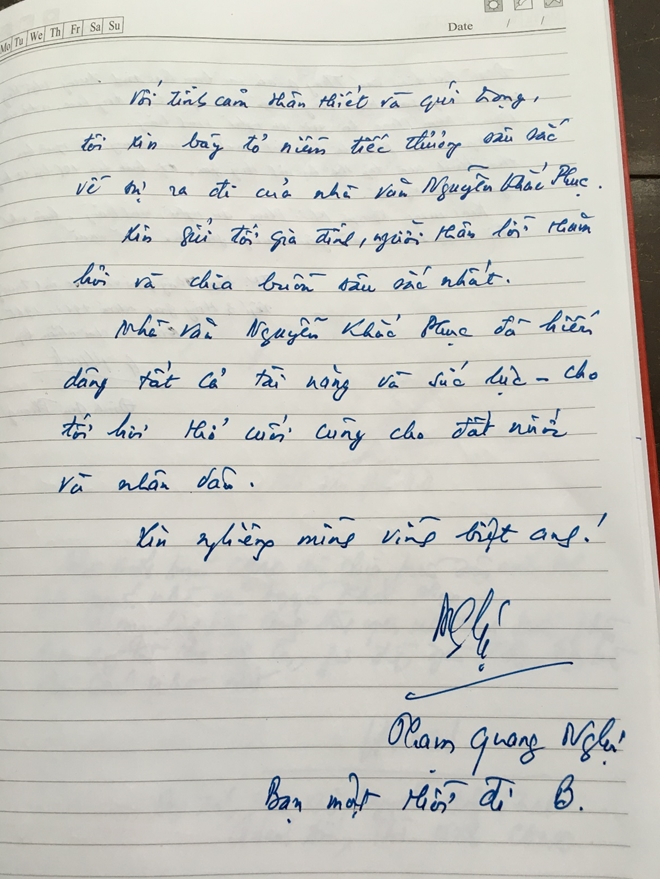 Mo Tu We Th Fr Sa Su
Date / /
Với tình cảm thân thiết và quí trọng,
tôi xin bày tỏ niềm tiếc thương sâu sắc
về sự ra đi của nhà văn Nguyễn Khắc Phục.
Xin gửi tới gia đình, người thân lời thăm
hỏi và chia buồn sâu sắc nhất.
Nhà văn Nguyễn Khắc Phục đã hiến
dâng tất cả tài năng và sức lực – cho
tới hơi thở cuối cùng cho đất nước
và nhân dân.
Xin nghiêng mình vĩnh biệt anh!
Nghị
Phạm Quang Nghị
Bạn một thời đi B.